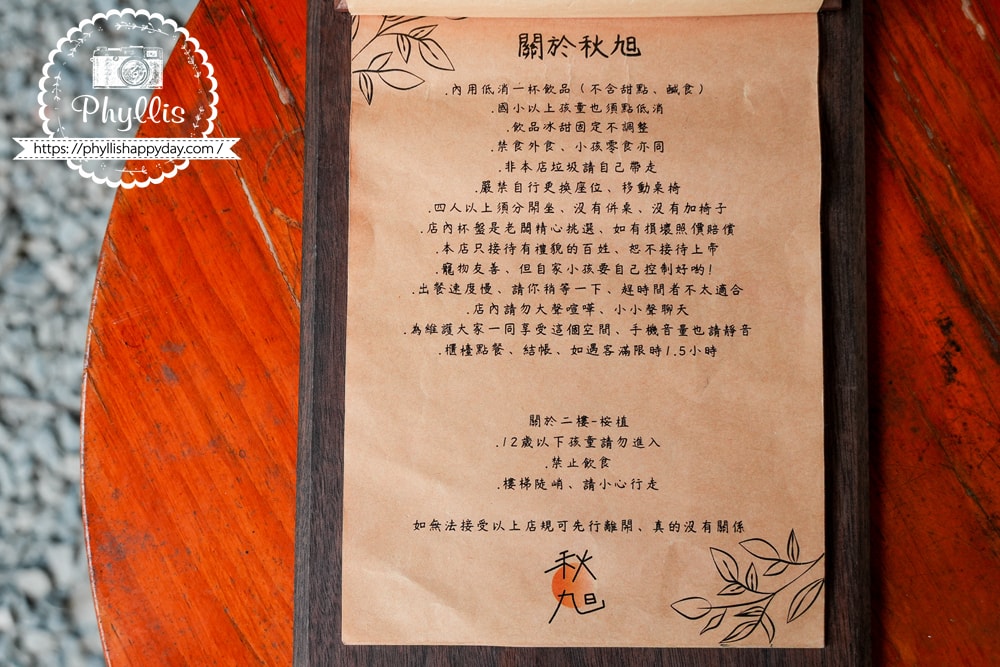 Phyllis
https://phyllishappyday.com/
關於秋旭
.內用低消一杯飲品（不含甜點、鹹食）
.國小以上孩童也須點低消
.飲品冰甜固定不調整
.禁食外食、小孩零食亦同
.非本店垃圾請自己帶走
.嚴禁自行更換座位、移動桌椅
.四人以上須分開坐、沒有併桌、沒有加椅子
.店內杯盤是老闆精心挑選、如有損壞照價賠償
.本店只接待有禮貌的百姓、恕不接待上帝
.寵物友善、但自家小孩要自己控制好喲!
.出餐速度慢、請你稍等一下、趕時間者不太適合
.店內請勿大聲喧嘩、小小聲聊天
.為維護大家一同享受這個空間、手機音量也請靜音
.櫃檯點餐、結帳、如遇客滿限時1.5小時
關於二樓-桉植
.12歲以下孩童請勿進入
.禁止飲食
.樓梯陡峭、請小心行走
如無法接受以上店規可先行離開、真的沒有關係
秋旭